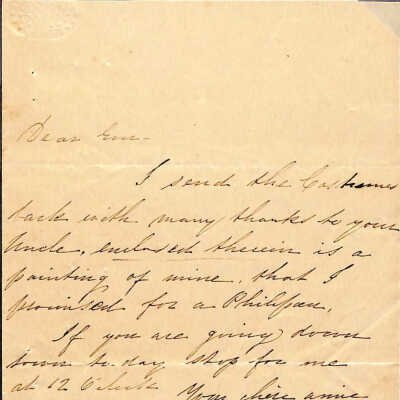 Dear Eve-
I send the Costumes
back with many thanks to your
Uncle, enclosed therein is a
painting of mine, that I
promised for a Philipœn.
If you are going down
town to-day stop for me
at 12 O'clock
Your chère amie